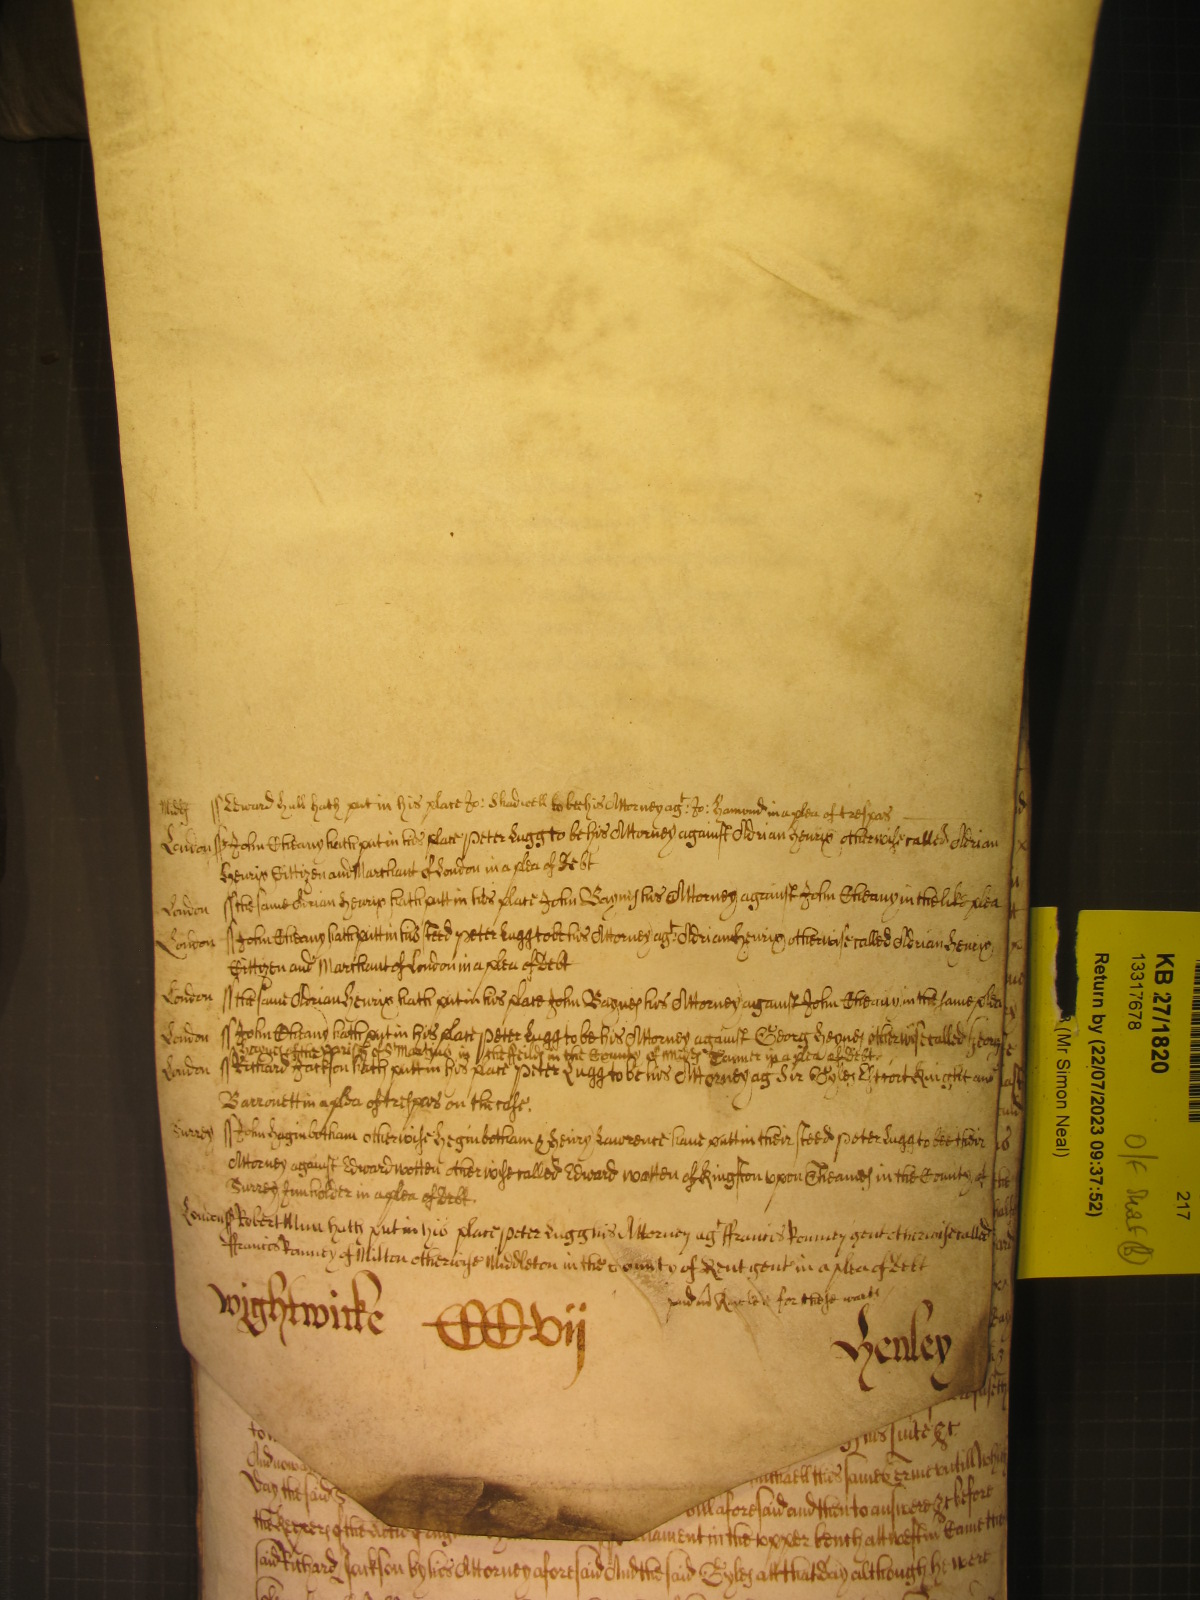 Midd ss Edward Hull hath put in his place Jo: Shadwell to bee his Attorney agt: Jo: Hamond in a plea of trespas
London ss John Cheany hath put in his place Peter Lugg to be his Attorney against Adrian Henrix otherwise called Adrian
Henrix Cittizen and Marchant of London in a plea of Debt
London ss the same Adrian Henrix hath putt in his place John Baynes his Attorney against John Cheany in the like plea
London ss John Cheany hath putt in his steed Peter Lugg to be his Attorney agt: Adrian Henrix otherwise called Adrian Henrix
Cittizen and Marchant of London in a plea of Debt
London ss the same Adrian Henrix hath put in his place John Baynes his Attorney against John Cheany in the same plea
London ss John Cheany hath put in his place Peter Lugg to be his Attorney against Georg Heynes otherwise called George
Heynes of the parish of St Martins in the feilds in the County of Midds Tanner in a plea of Debt
London ss Richard Jackson hath putt in his place Peter Lugg to be his Attorney ag Sir Gyles Knight and
Barronett in a plea of trespas on the case.
Surrey ss John Heginbotham otherwise Heginbotham & Henry Lawrence have putt in their steed Peter Lugg to bee their
Attorney against Edward Wotten otherwise called Edward Wotten of Kingston upon Theames in the County of
Surrey Innholder in a plea of Debt.
London ss Robert hath put in his place Peter Lugg his Attorney agt ffrancis Romney gent otherwise called
ffrancis Romney of Milton otherwise Middleton in the County of Kent gent in a plea of Debt
for these
Wightwicke CCCvij Henley
his suite &c
And now
Michaell this same Terme untill which
Day the said aforesaid and then to answere &c before
the keepers of the liberty of England Parliament in the upper bench att Westm Came the
said Richard Jackson by his Attorney aforesaid And the said Gyles att that day although he were
KB 27/1820
217
13317678
Return by (22/07/2023 09:37:52)
(Mr Simon Neal)